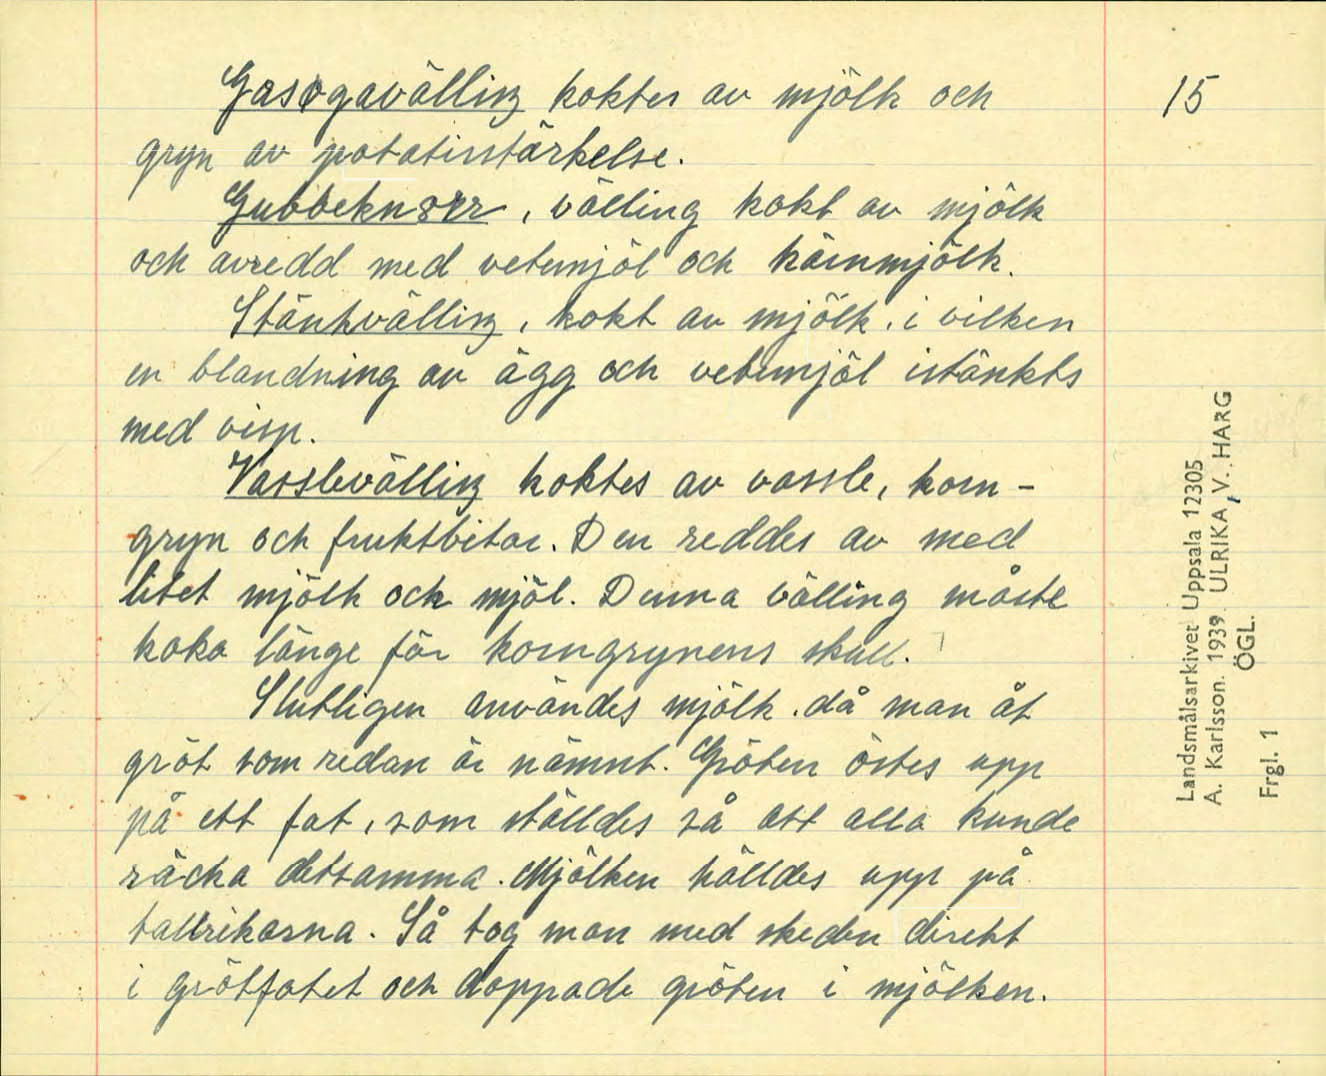 Gasogavälling koktes av mjölk och
gryn av potatisstärkelse.
Gubbeknorr, välling kokt av mjölk
och avredd med vetemjöl och kärnmjölk.
Stänkvälling, kokt av mjölk, i vilken
en blandning av ägg och vetemjöl istänkts
med visp.
Vasslevälling koktes av vassle, korn-
gryn och fruktbitar. Den reddes av med
litet mjölk och mjöl. Denna välling måste
koka länge för korngrynens skull.
Slutligen användes mjölk, då man åt
gröt som redan är nämnt. Gröten östes upp
på ett fat, som ställdes så att alla kunde
räcka detsamma. Mjölken hälldes upp på
tallrikarna. Så tog man med skeden direkt
i grötfatet och doppade gröten i mjölken.
15
Landsmålsarkivet Uppsala 12305
A. Karlsson. 1939. ULRIKA, V. HARG
ÖGL.
Frgl. 1